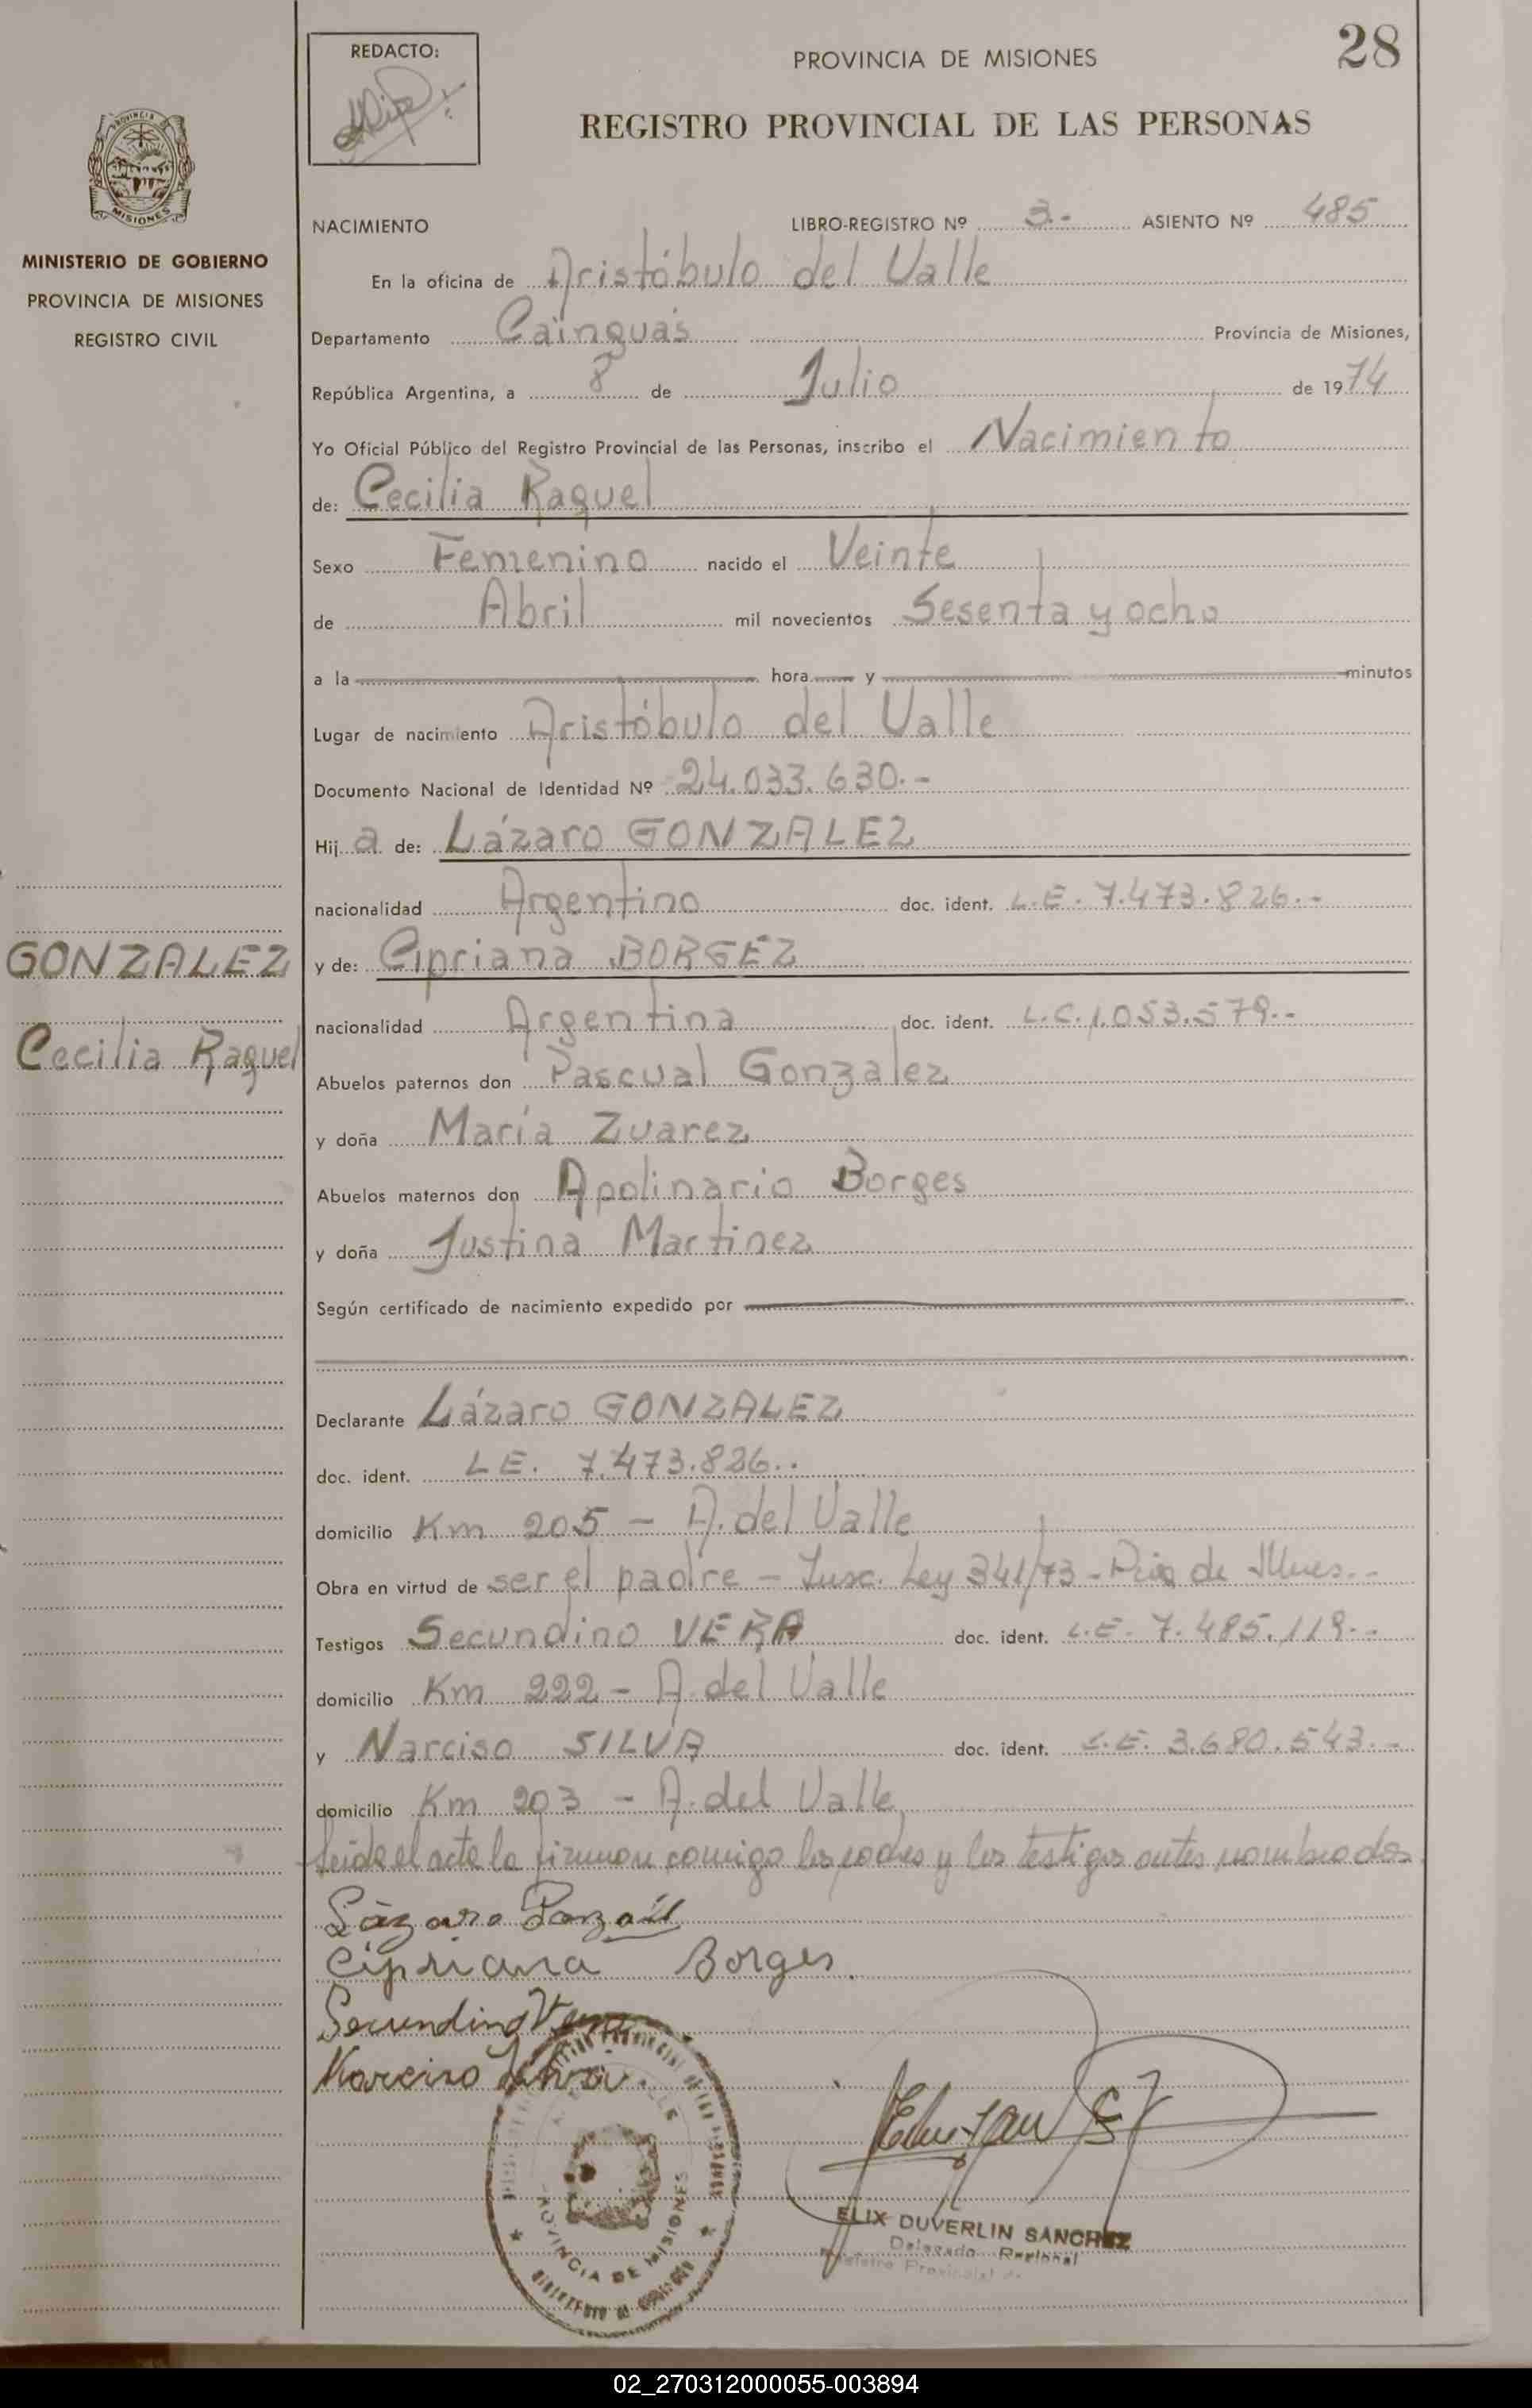 REDACTO:
PROVINCIA DE MISIONES
28
REGISTRO PROVINCIAL DE LAS PERSONAS
PROVINCIA
MISIONES
MINISTERIO DE GOBIERNO
PROVINCIA DE MISIONES
REGISTRO CIVIL
NACIMIENTO LIBRO-REGISTRO Nº 3.- ASIENTO Nº 485
En la oficina de Aristóbulo del Valle
Departamento Cainguás Provincia de Misiones,
República Argentina, a 8 de Julio de 1974
Yo Oficial Público del Registro Provincial de las Personas, inscribo el Nacimiento
de: Cecilia Raquel
Sexo Femenino nacido el Veinte
de Abril mil novecientos Sesenta y ocho
a la hora y minutos
Lugar de nacimiento Aristóbulo del Valle
Documento Nacional de Identidad Nº 24.033.630.-
Hij a de: Lázaro GONZALEZ
nacionalidad Argentino doc. ident. L.E. 7.473.826.-
GONZALEZ
y de: Cipriana BORGEZ
nacionalidad Argentina doc. ident. L.C. 1.053.579.-
Cecilia Raquel
Abuelos paternos don Pascual Gonzalez
y doña María Zuarez
Abuelos maternos don Apolinario Borges
y doña Justina Martinez
Según certificado de nacimiento expedido por
Declarante Lázaro GONZALEZ
doc. ident. L E. 7.473.826..
domicilio Km 205 - A. del Valle
Obra en virtud de ser el padre - Insc. Ley 341/73 - Pcia de Mnes.-
Testigos Secundino VERA doc. ident. L.E. 7.485.119.-
domicilio Km 222 - A. del Valle
y Narciso SILVA doc. ident. L.E. 3.680.543.-
domicilio Km 203 - A. del Valle
Leida el acta la firman comigo los padres y los testigos antes nombrados
Lázaro Gonzalez
Cipriana Borges.
Secundino Vera
Narciso Silva.
PROVINCIA DE MISIONES
ELIX DUVERLIN SANCHEZ
Delegado Regional
Registro Provincial de
02_270312000055-003894